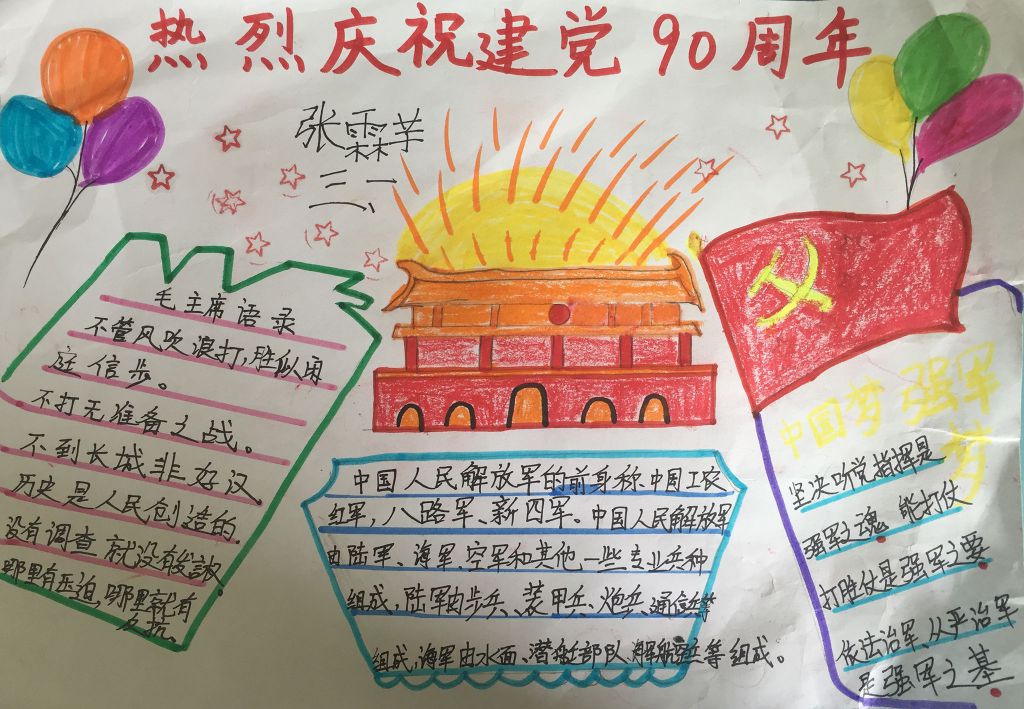 热烈庆祝建党90周年
张霖芊
三、一
毛主席语录
不管风吹浪打,胜似闲
庭信步。
不打无准备之战。
不到长城非好汉.
历史是人民创造的.
没有调查就没有发言权
哪里有压迫,哪里就有
反抗。
中国人民解放军的前身称中国工农
红军,八路军、新四军、中国人民解放军
由陆军、海军、空军和其他一些专业兵种
组成,陆军由步兵、装甲兵、炮兵、通信兵等
组成,海军由水面、潜艇部队、海航空兵等组成。
中国梦 强军
梦
坚决听党指挥是
强军之魂 能打仗
打胜仗是强军之要
依法治军、从严治军
是强军之基